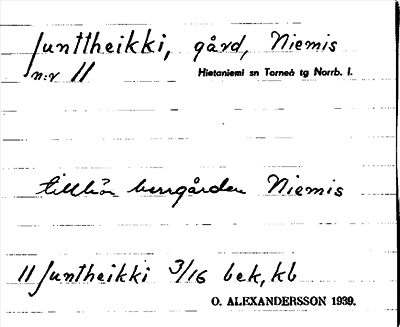 Juntheikki, gård, Niemis
n:r 11
Hietaniemi sn Torneå tg Norrb. l.
tillhör herrgården Niemis
11 Juntheikki 3/16 bek, kb
O. ALEXANDERSSON 1939.